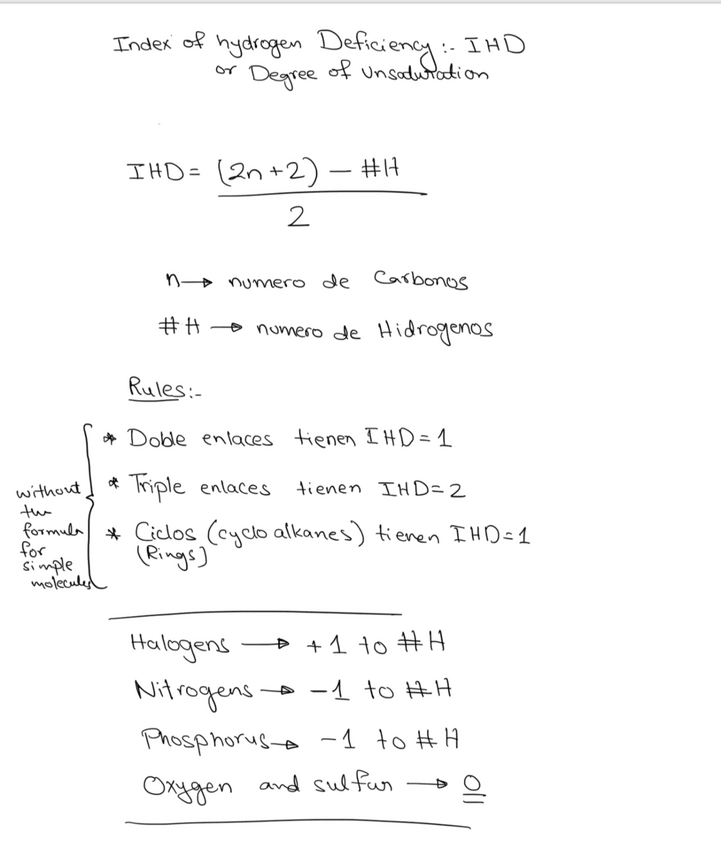 Index of hydrogen Deficiency :- IHD
or Degree of Unsaturation
IHD = (2n+2) - #H
2
n → numero de Carbonos
#H → numero de Hidrogenos
Rules:-
* Doble enlaces tienen IHD=1
* Triple enlaces tienen IHD=2
* Ciclos (cyclo alkanes) tienen IHD=1
(Rings)
without
the
formula
for
simple
molecules
Halogens → +1 to #H
Nitrogens → -1 to #H
Phosphorus → -1 to #H
Oxygen and sulfur → 0